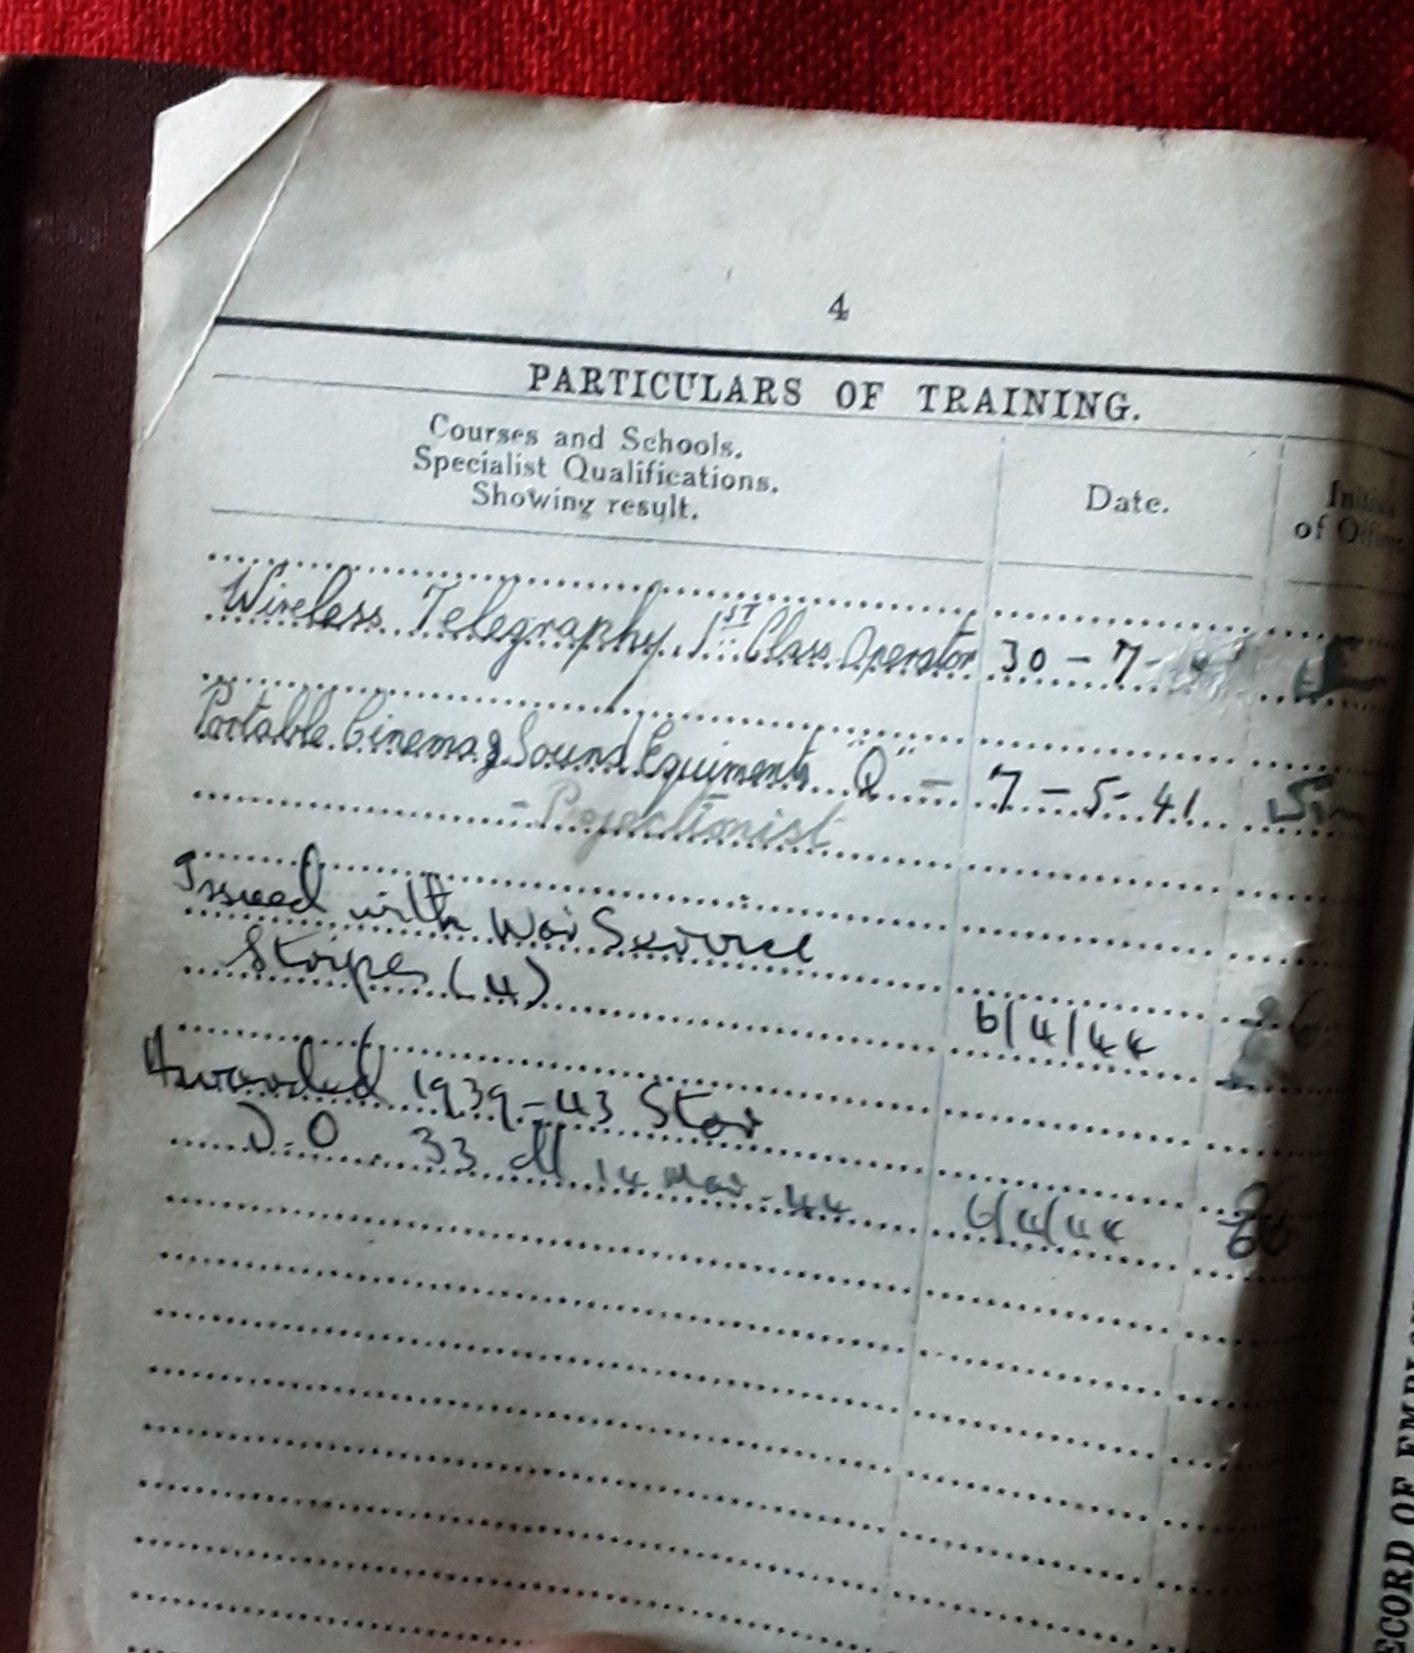 4
PARTICULARS OF TRAINING.
Courses and Schools.
Specialist Qualifications.
Showing result.
Date.
Initials
of Officer
Wireless Telegraphy. 1ST Class Operator 30 - 7 -
Portable Cinema & Sound Equiments "Q" - 7 - 5 - 41
- Projectionist
Issued with War Service
Stripes (4) 6/4/44
Awarded 1939-43 Star
D.O. 33 14 Mar. 44 6/4/44
ECORD OF EMPLO